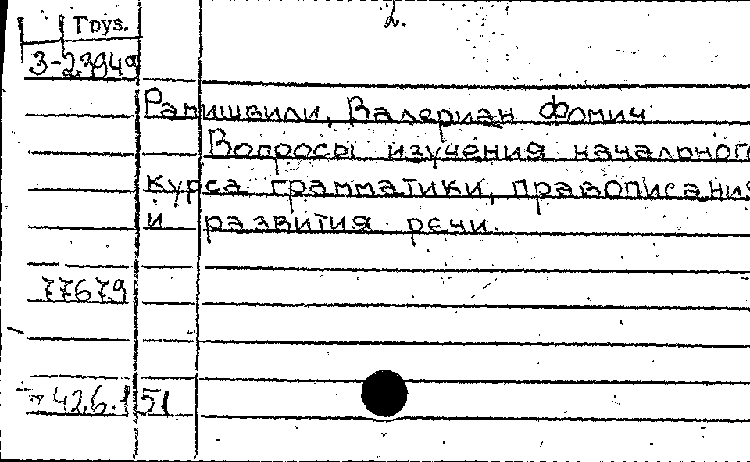 2.
Груз.
3-23949
Рамишвили, Валериан Фомич
Вопросы изучения начального
курса грамматики, правописания
и развития речи.
77679
42.6.151